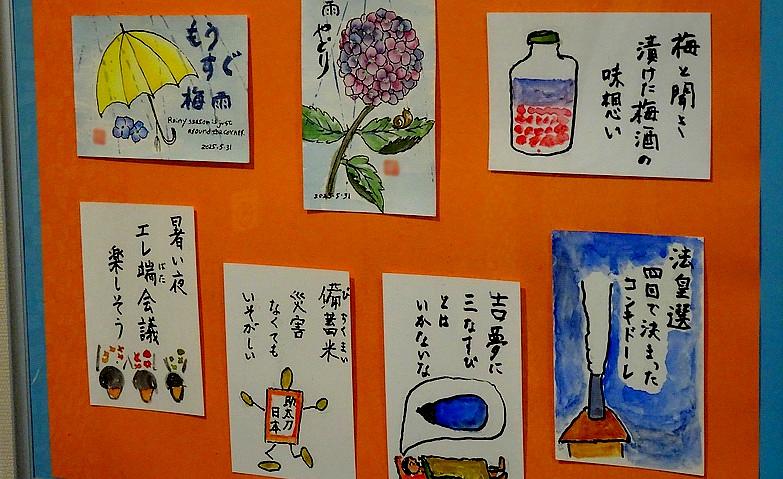 もうすぐ
梅雨
Rainy season is just
around the corner.
2025.5.31
雨やどり
2025.5.31
梅と聞き
漬けた梅酒の
味想い
暑い夜
エレ端会議
ばた
楽しそう
備蓄米
びちくまい
災害
なくても
いそがしい
助太刀
日本
吉夢に
三なすび
とは
いかないな
法皇選
四回で決まった
コンキドーレ